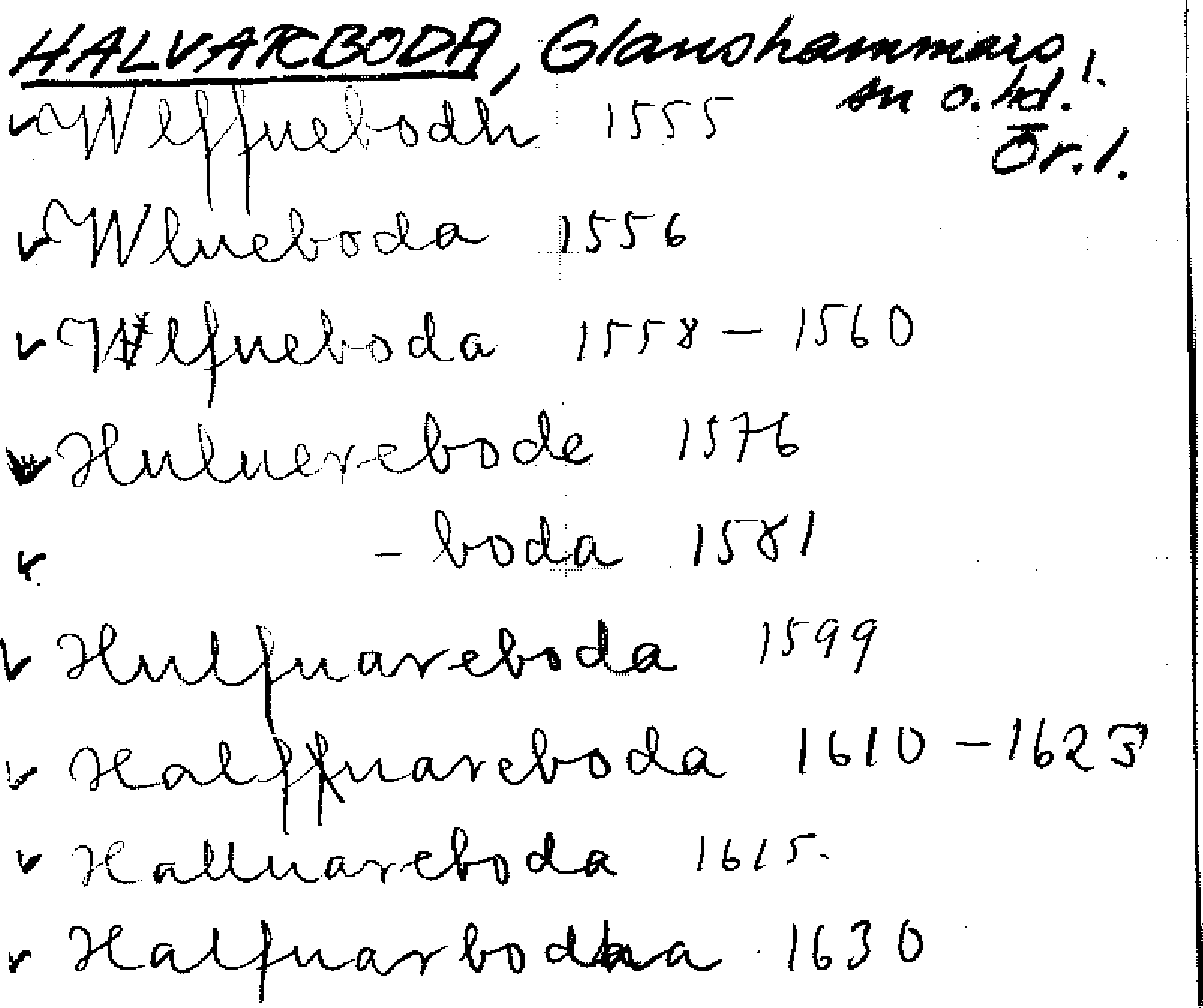 HALVARBODA, Glanshammars
sn o. hd. 1.
Ör. l.
Wlffuebodh 1555
Wlueboda 1556
Wlfueboda 1558 – 1560
Huluerebode 1576
– boda 1581
Hulfuareboda 1599
Halffuareboda 1610 – 1625
Halluareboda 1615.
Halfuarbodha 1630